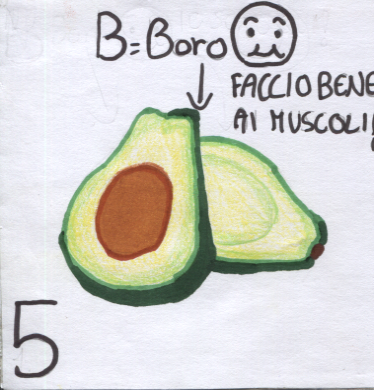 B=Boro
FACCIO BENE
AI MUSCOLI
5